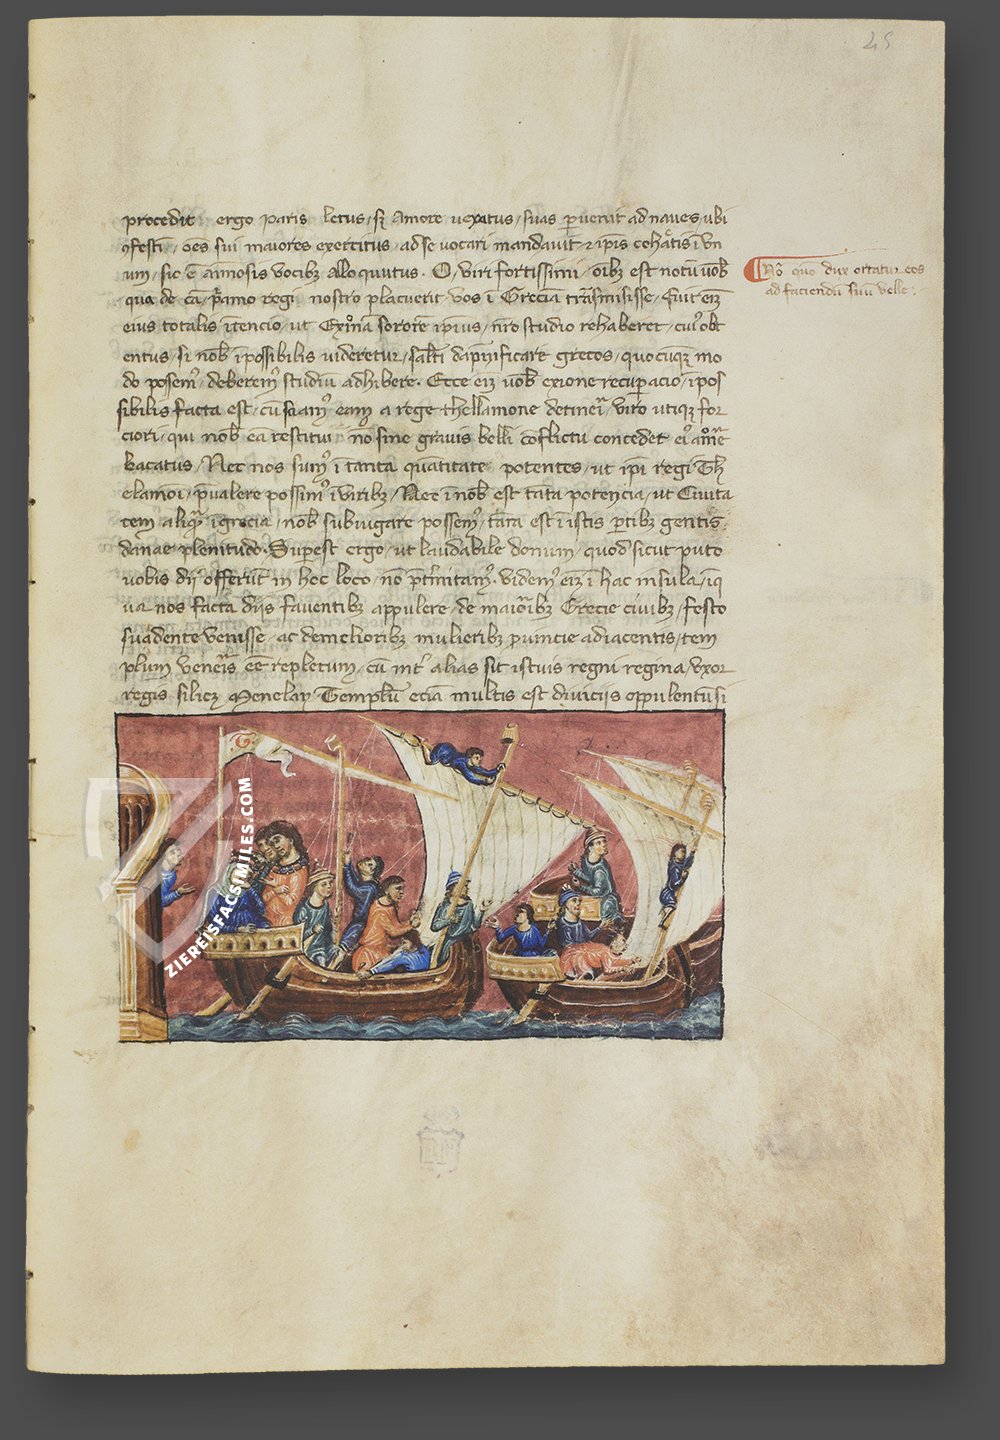 45
procedit ergo paris letus, sꝫ Amore uexatus, suas ꝑuenit ad naues, ubi
ꝯfestĩ, oẽs sui maiores exercitus, ad se uocari mandauit, ⁊ ip̃is cohãtis ĩ vn
um, sic ẽ animosis vocibꝫ Alloquutus. O, viri fortissimi, oĩbꝫ est notũ uob̃
qua de cã, p̃amo regi nostro placuerit vos ĩ Greciã trãsmisisse, Fuit eĩ
eius totalis ĩtencio, ut Exionã sororẽ ipsius, nr̃o studio rehaberet, cuiꝰ obt
entus, si nob̃ ĩpossibilis uideretur, saltĩ dãpnificare grecos, quocũqꝫ mo
do possemꝰ, deberemꝰ studiũ adhibere. Ecce eĩ uob̃ exione recupacio, ĩpos
sibilis facta est, cũ sciamꝰ eam a rege thellamone detinerĩ, viro utiqꝫ for
ciori, qui nob̃ eã restitui nõ sine gravis belli cõflictu concedet eiꝰ amõre
bacatus, Nec nos sumꝰ ĩ tanta quãntitate potentes, ut ip̃i regi Th
elamoĩ, p̃ualere possimꝰ ĩ viribꝫ, Nec ĩ nob̃ est tãta potencia, ut Ciuita
tem aliquã ĩ grecia, nob̃ subiugare possemꝰ, tãta est ĩ istis ꝑtibꝫ gentis
danae plenitudo. Suꝑest ergo, ut laudabile donum, quod sicut puto
uobis dij offerũt in hoc loco, nõ p̃tmitamꝰ. videmꝰ eĩ ĩ hac insula, ĩ q
ua nos facta dijs faventibꝫ appulere, de maioribꝫ Grecie civibꝫ, festo
suadente venisse, ac de melioribꝫ mulieribꝫ ꝓuincie adiacentis, tem
plum veneris eẽ repletum, cũ int̃ alias sit istuis regni regina, vxor
regis silicꝫ Menelay Templũ eciã multis est diviciis oppulentũ si
Nõ quo dux ortatur eos
ad faciendũ suũ velle
ZIEREISFACSIMILES.COM